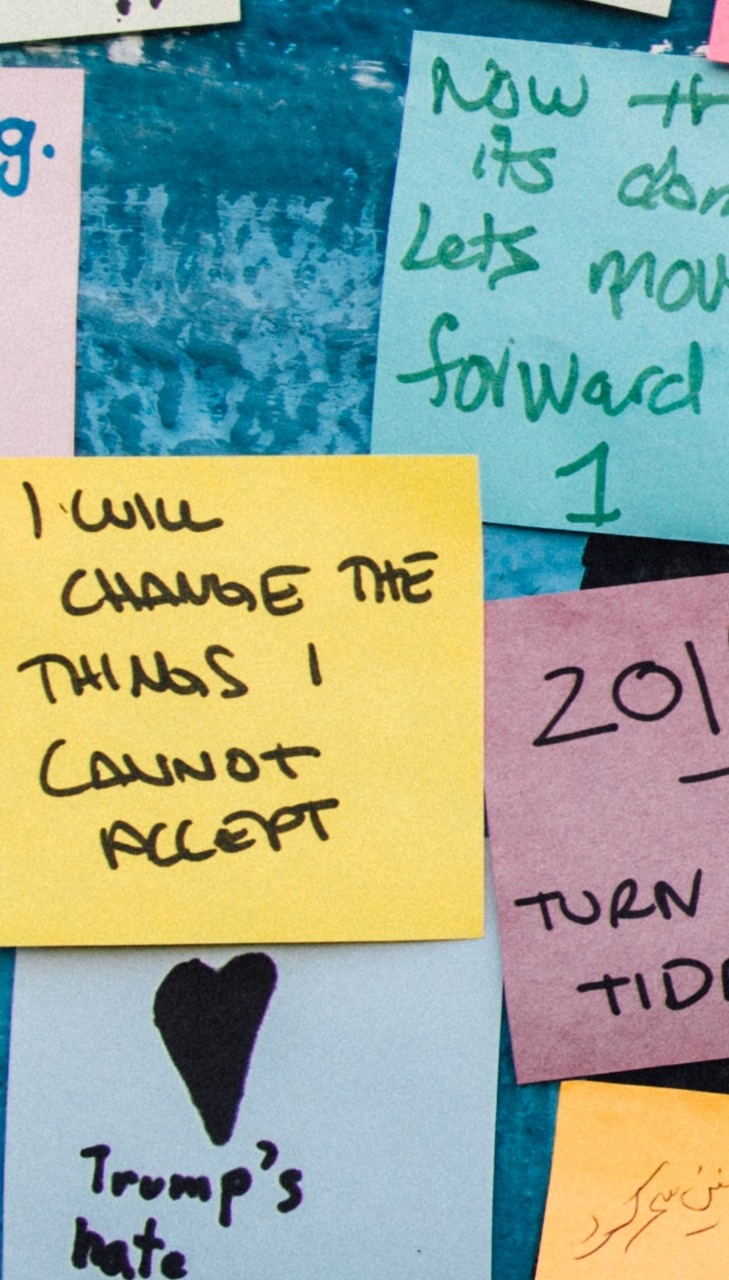 g.
Now th
its don
Lets mov
forward
1
I WILL
CHANGE THE
THINGS I
CANNOT
ACCEPT
201
TURN
TIDE
Trump's
hate